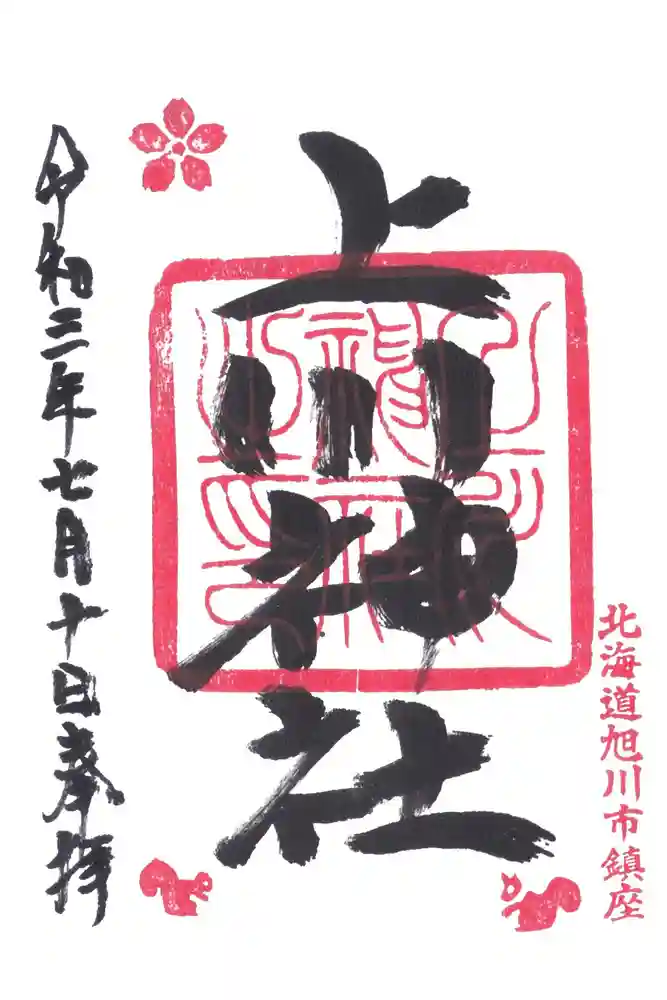 北海道旭川市鎮座
上川神社
令和三年七月十日奉拝